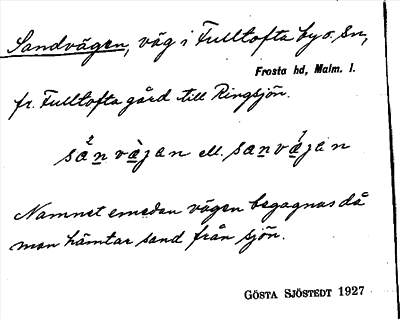 Sandvägen, väg i Fulltofta by o. sn,
Frosta hd, Malm. l.
fr. Fulltofta gård till Ringsjön.
sa²n vàjan ell. sanvájan
Namnet emedan vägen begagnas då
man hämtar sand från sjön.
GÖSTA SJÖSTEDT 1927